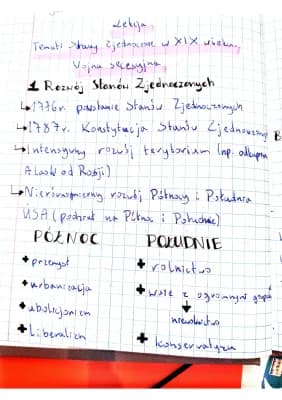 Lekcja
Temat: Stany Zjednoczone w XIX wieku.
Wojna secesyjna
1 Rozwój Stanów Zjednoczonych
↳1776r. powstanie Stanów Zjednoczonych
↳1787r. Konstytucja Stanów Zjednoczonych
↳Intensywny rozwój terytorium (np. odkupienie
Alaski od Rosji)
↳Nierównomierny rozwój Północy i Południa
USA (podział na Północ i Południe)
PÓŁNOC POŁUDNIE
+przemysł +rolnictwo
+urbanizacja +wsie z ogromnymi
+abolicjonizm niewolnictwo
+Liberalizm +konserwatyzm